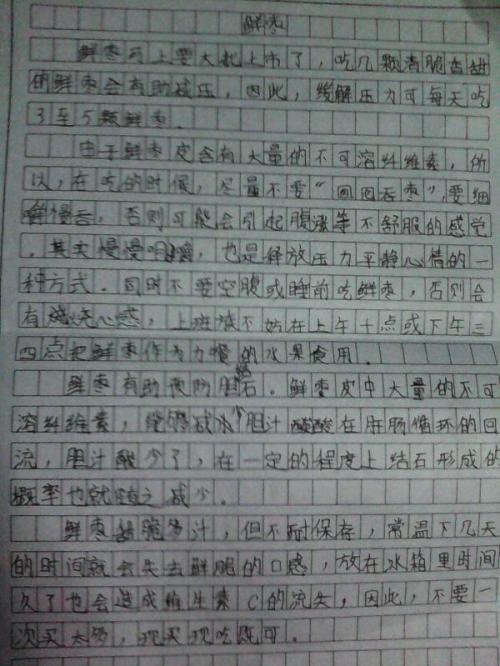 鲜枣
鲜枣马上要大批上市了，吃几颗清脆香甜
的鲜枣会有助减压，因此，缓解压力可每天吃
3至5颗鲜枣．
由于鲜枣皮含有大量的不可溶纤维素，所
以，在吃的时候，尽量不要“囫囵吞枣”，要细
嚼慢吞，否则可能会引起腹涨等不舒服的感觉
．其实慢慢咀嚼，也是释放压力平静心情的一
种方式．同时不要空腹或睡前吃鲜枣，否则会
有烧心感，上班族不妨在上午十点或下午三
四点把鲜枣作为加餐的水果食用．
鲜枣有助预防胆结石．鲜枣皮中大量的不可
溶纤维素，能够减少胆汁酸在肝肠循环的回
流，胆汁酸少了，在一定的程度上结石形成的
概率也就随之减少．
鲜枣甜脆多汁，但不耐保存，常温下几天
的时间就会失去鲜脆的口感，放在冰箱里时间
久了也会造成维生素C的流失，因此，不要一
次买太多，现买现吃既可．